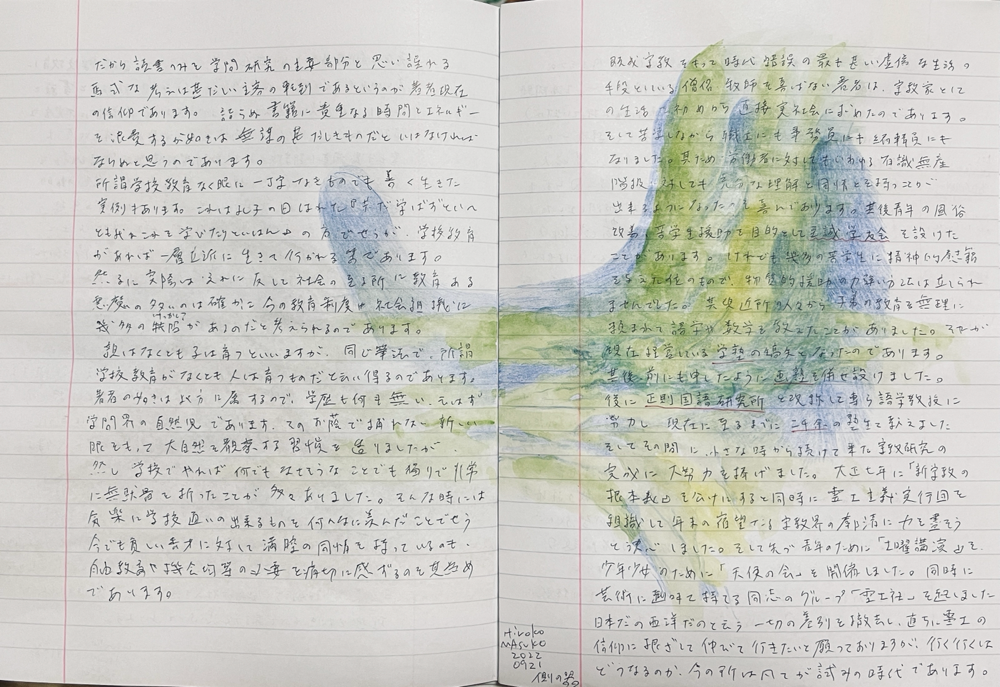 だから読書のみを学問研究の主要部分と思い誤れる
旧式な考えは甚だしい主客の転倒であるというのが著者現在
の信仰であります。読らぬ書籍に貴重なる時間とエネルギー
を浪費するが如きは無謀の甚だしきものだといはなければ
ならぬと思うのであります。
所謂学校教育なく眼に一丁字なきものでも善く生きた
実例もあります。これはよし子の曰はれた『未だ学ばずといへ
ども我これを学びたりといはん』の方でせうが、学校教育
があれば一層立派に生きて行かれる筈であります。
然るに実際はこれに反して社会のある所に教育ある
悪魔の多いのは確かに今の教育制度や社会組織に
幾多の欠陥があるのだと考えられるのであります。
親はなくとも子は育つといいますが、同じ筆法で、所謂
学校教育がなくとも人は育つものだと云い得るのであります。
著者の如きはその方に属するので、学歴も何も無い、いはば
学問界の自然児であります。そのお蔭で捕われない新しい
眼をもって大自然を観察する習慣を造りましたが
然し学校でやれば何でもなさそうなことでも独りで非常
に無駄骨を折ったことが多々ありました。そんな時には
気楽に学校通いの出来るものを何んなに羨んだことでせう
今でも貧しい秀才に対して満腔の同情を持っているのも、
自由教育や機会均等の必要を痛切に感ずるのも其為め
であります。
既成宗教をもって時代錯誤の最も甚しい虚偽な生活の
手段としいる僧侶、牧師を喜ばない著者は、宗教家としての
の生活を初めから直接実社会にもとめたのであります。
そして苦学しながら職工にも事務員にも組積員にも
なりました。其ため労働者に対してもいわゆる有識無産
階級に対しても充分な理解と同情とを持つことが
出来るようになったのを喜んであります。其後青年の風俗
改善、苦学生援助を目的として至誠学友会を設けた
ことがあります。けれども幾多の苦学生に精神的慰藉
を与えた位のもので、物質的援助の力強い方には立られ
ませんでした。其後近所の人々から子弟の教育を無理に
頼まれて語学や数学を教えたことがありました。それが
現在経営している学塾の端緒となったのであります。
其後前にも申したように画塾を併せ設けました。
後に正則国語研究所と改称して専ら語学教授に
努力し、現在に至るまでに二千余の塾生を教えました
そしてその間に小さな時から続けて来た宗教研究の
完成に大努力を捧げました。大正七年に「新宗教の
根本義」を公けにすると同時に霊工主義実行団を
組織して年来の宿望たる宗教界の廓清に力を尽そう
と決心しました。そして先づ青年のために「土曜講演」を、
少年少女のために「天使の会」を開催しました。同時に
芸術に趣味を持てる同志のグループ「霊工社」を起しました
日本だの西洋だのと云う一切の差別を撤去し、直ちに霊工の
信仰に根ざして伸びて行きたいと願っておりますが、行く行くは
どうなるのか、今の所は凡てが試みの時代であります。
Hiroko
MAsuko
2022
0921
側の器